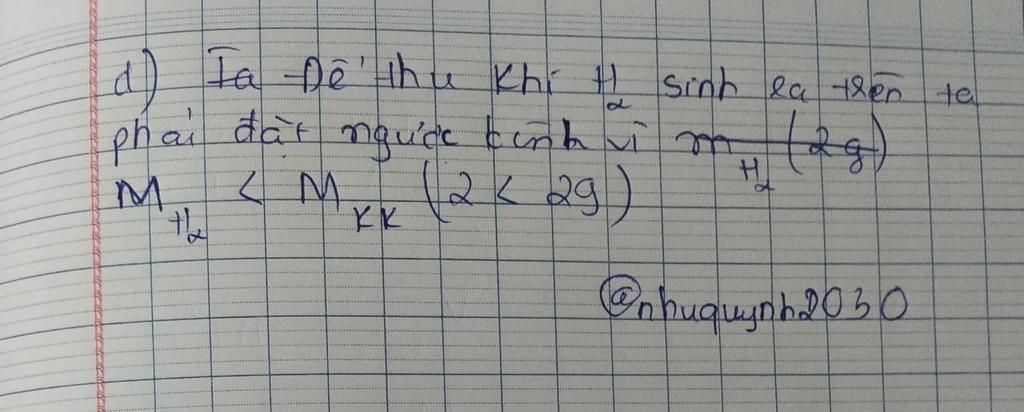 d) Ta Để thu khí H₂ sinh ra trên ta
phải đặt ngược bình vì m H₂ (2g)
M H₂ < M KK (2 < 29)
@nhuquynh2030